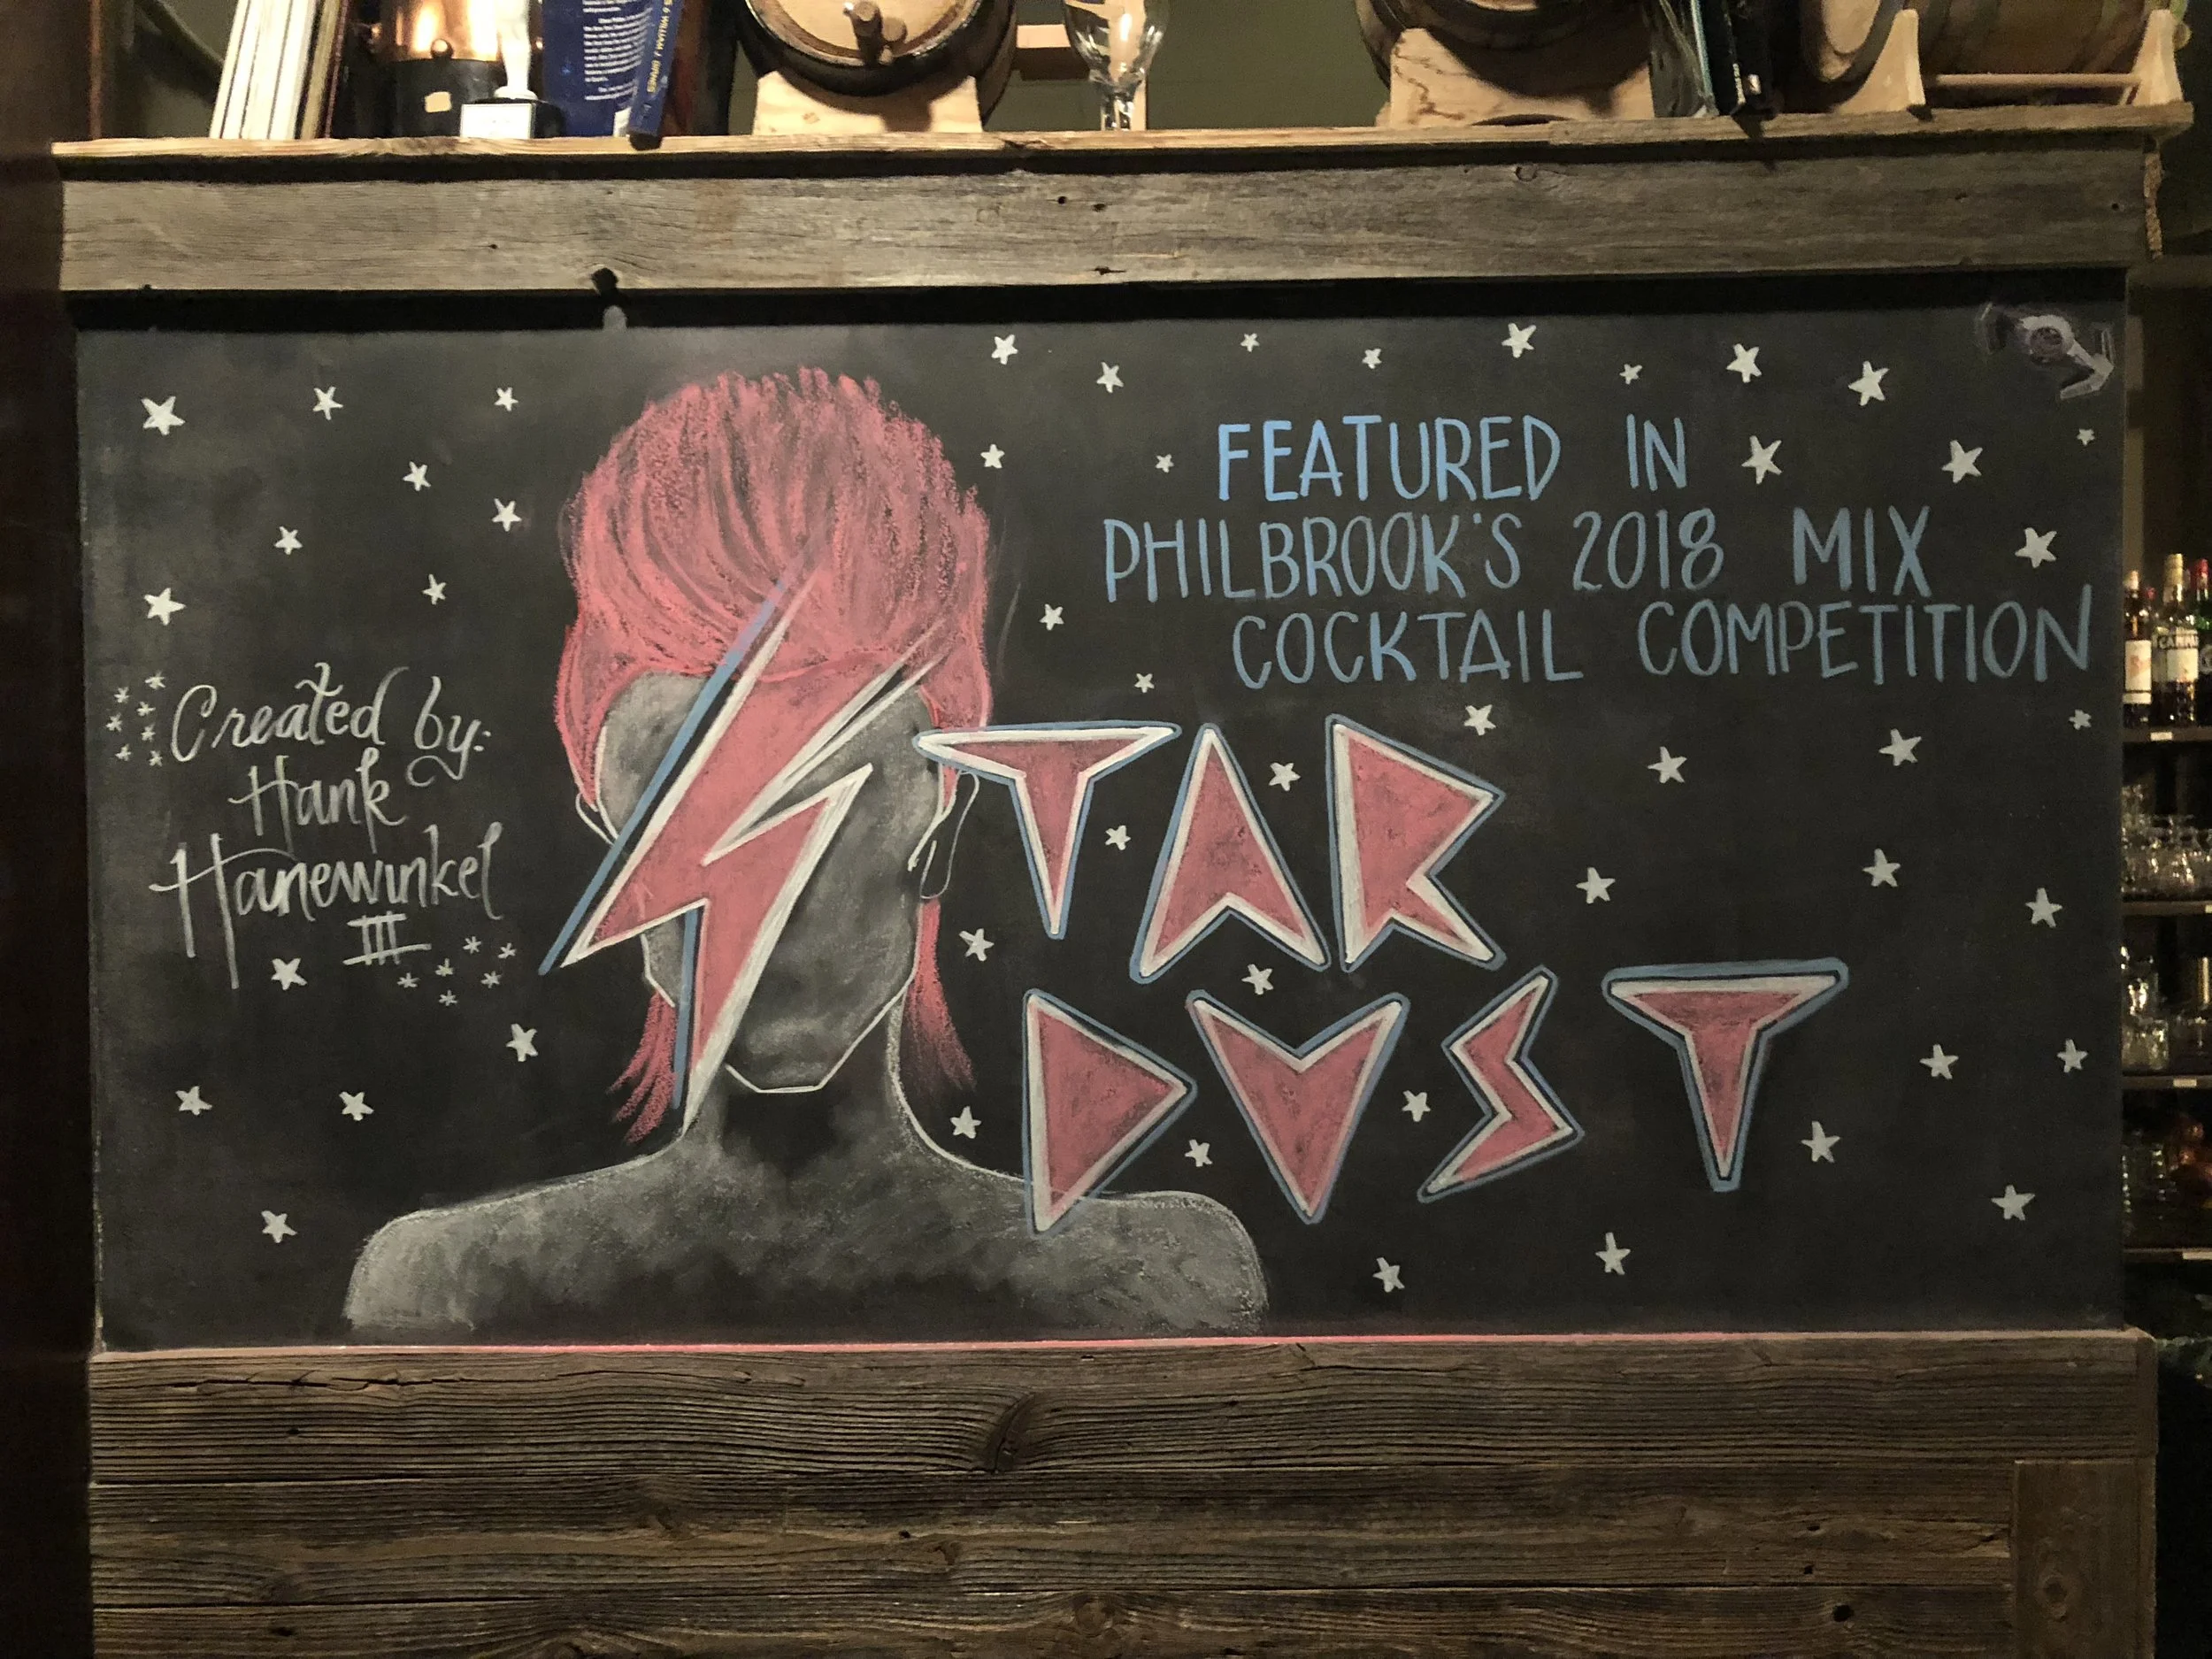 FEATURED IN
PHILBROOK'S 2018 MIX
COCKTAIL COMPETITION
Created by:
Hank
Hanewinkel
III
STAR
DUST